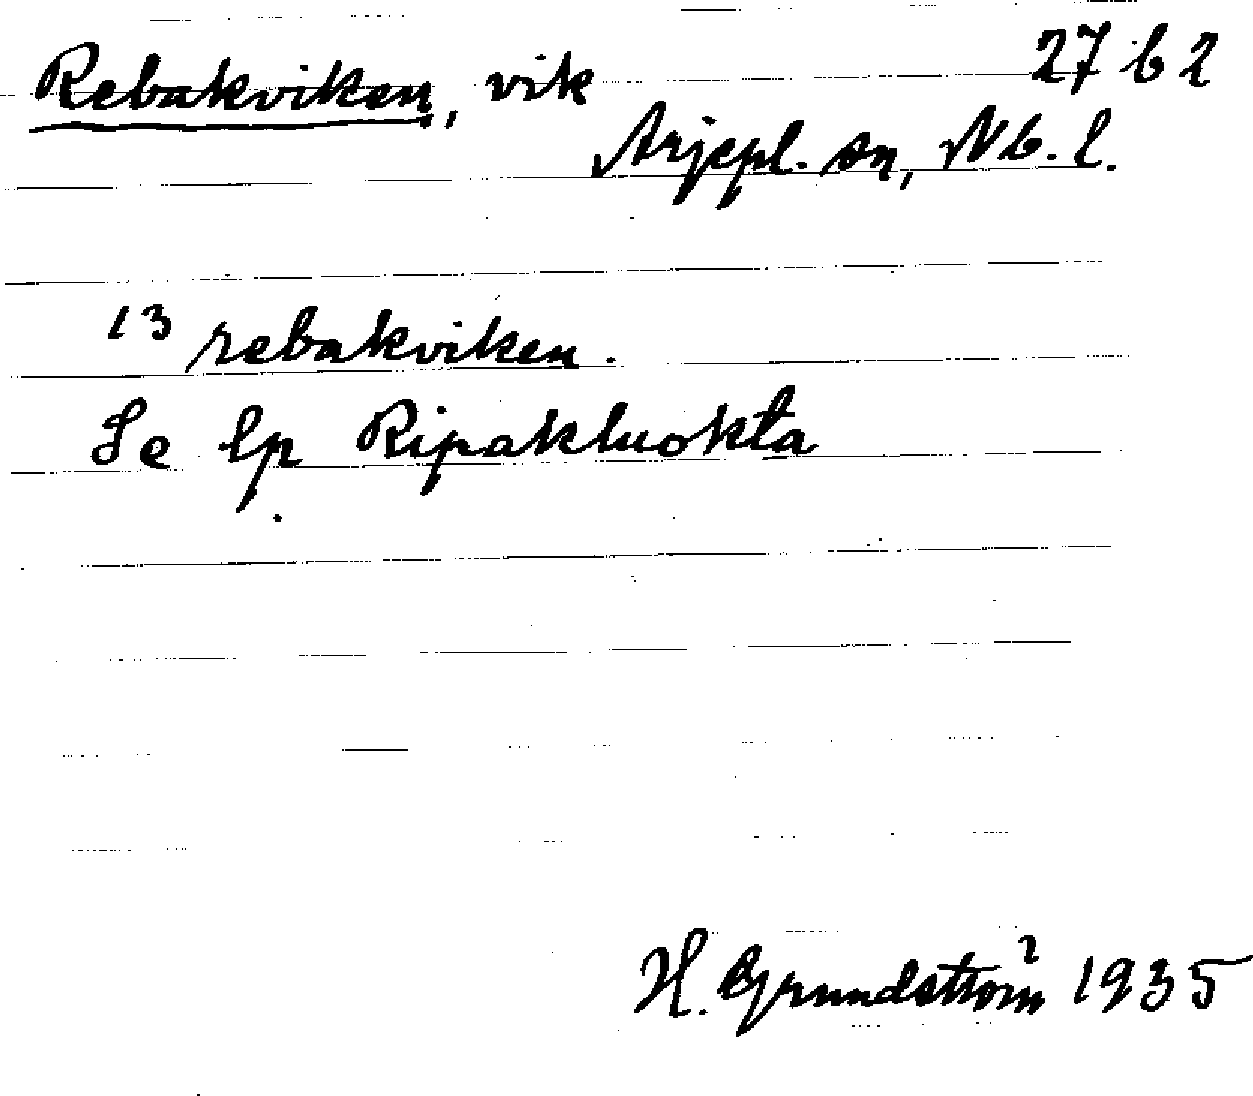 Rebakviken, vik 27 b 2
Arjepl. sn, Nb. l.
13 rebakviken.
Se lp Ripakluokta
H. Grundström 1935